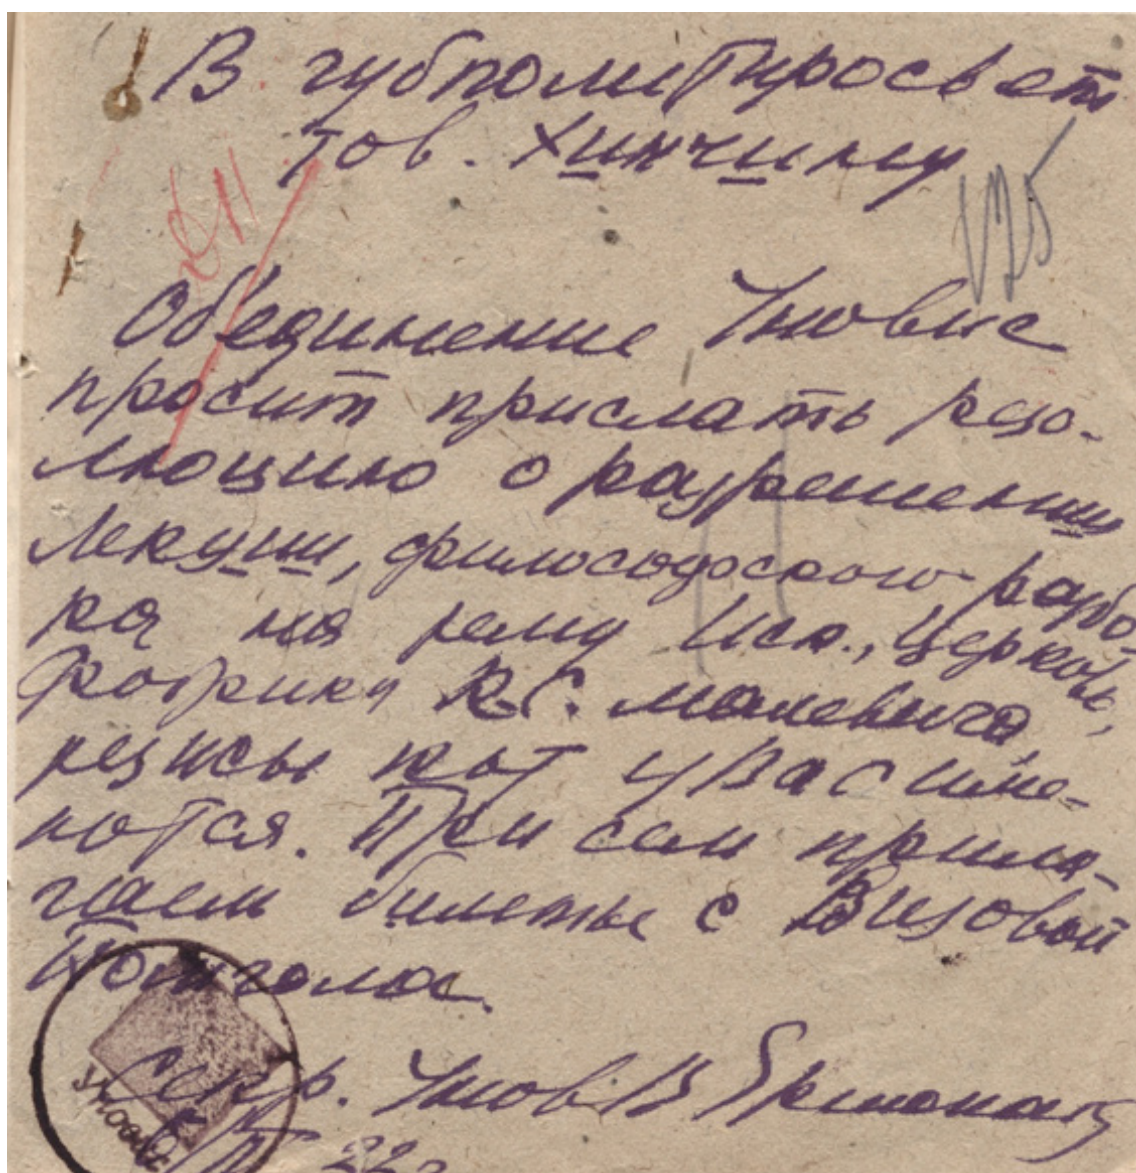 В губполитпросвет
тов. Хинчину
125
Объединение Уновис
просит прислать резо-
люцию о разрешении
Лекции, философского разбо-
ра на тему Иск., Церковь,
Фабрика К.С. Малевича,
тезисы кот у Вас име-
ются. При сем прила-
гаем билеты с Визовой
Секр. Унов
УНОВИС
22г